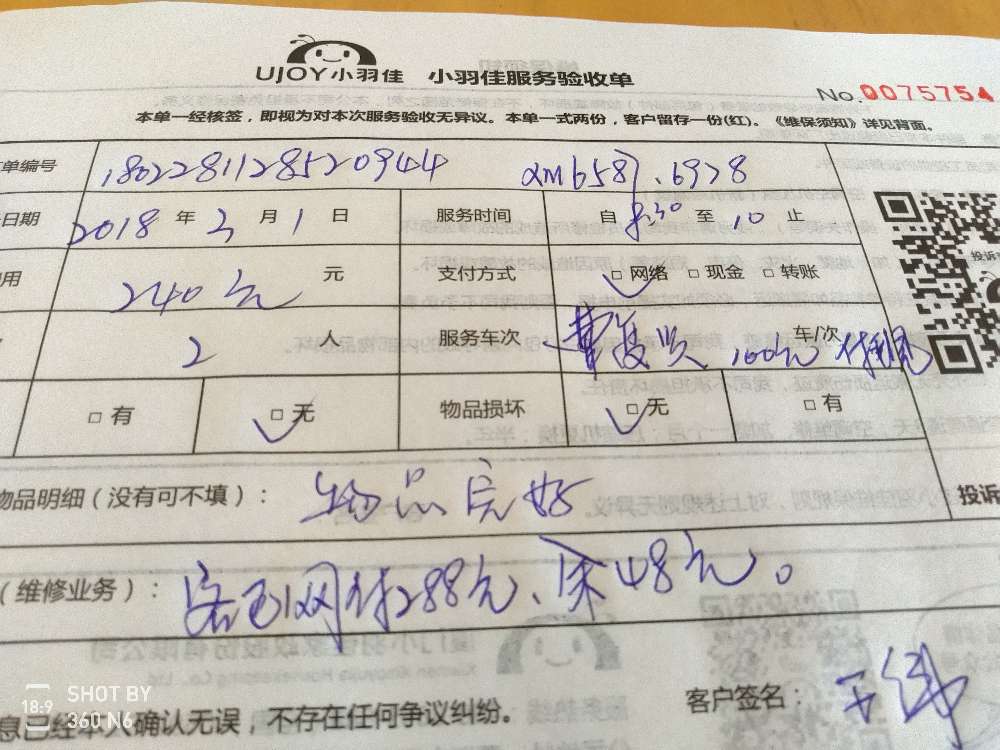 UJOY小羽佳 小羽佳服务验收单
No.0075754
本单一经核签，即视为对本次服务验收无异议。本单一式两份，客户留存一份(红)。《维保须知》详见背面。
单编号 1802281128520944
日期 2018 年 3 月 1 日 服务时间 自 8:30 至 10 止
用 240元 元 支付方式 □ 网络 □ 现金 □ 转账
2 人 服务车次 100元 车/次
□ 有 □ 无 物品损坏 □ 无 □ 有
物品明细（没有可不填）： 物品完好
投诉
（维修业务）： 网付288元、床48元。
客户签名：
息已经本人确认无误，不存在任何争议纠纷。
SHOT BY
360 N6
18:9